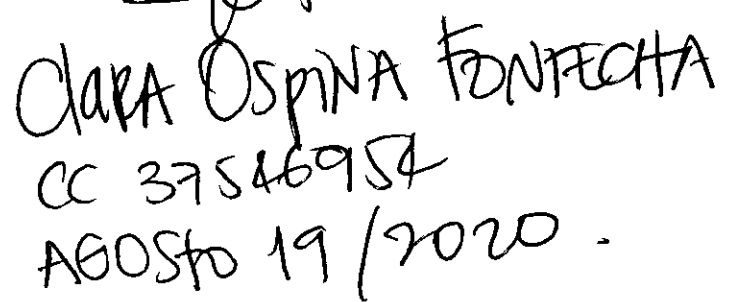 Clara Ospina Fontecha
CC 37546954
AGOSTO 19/2020.